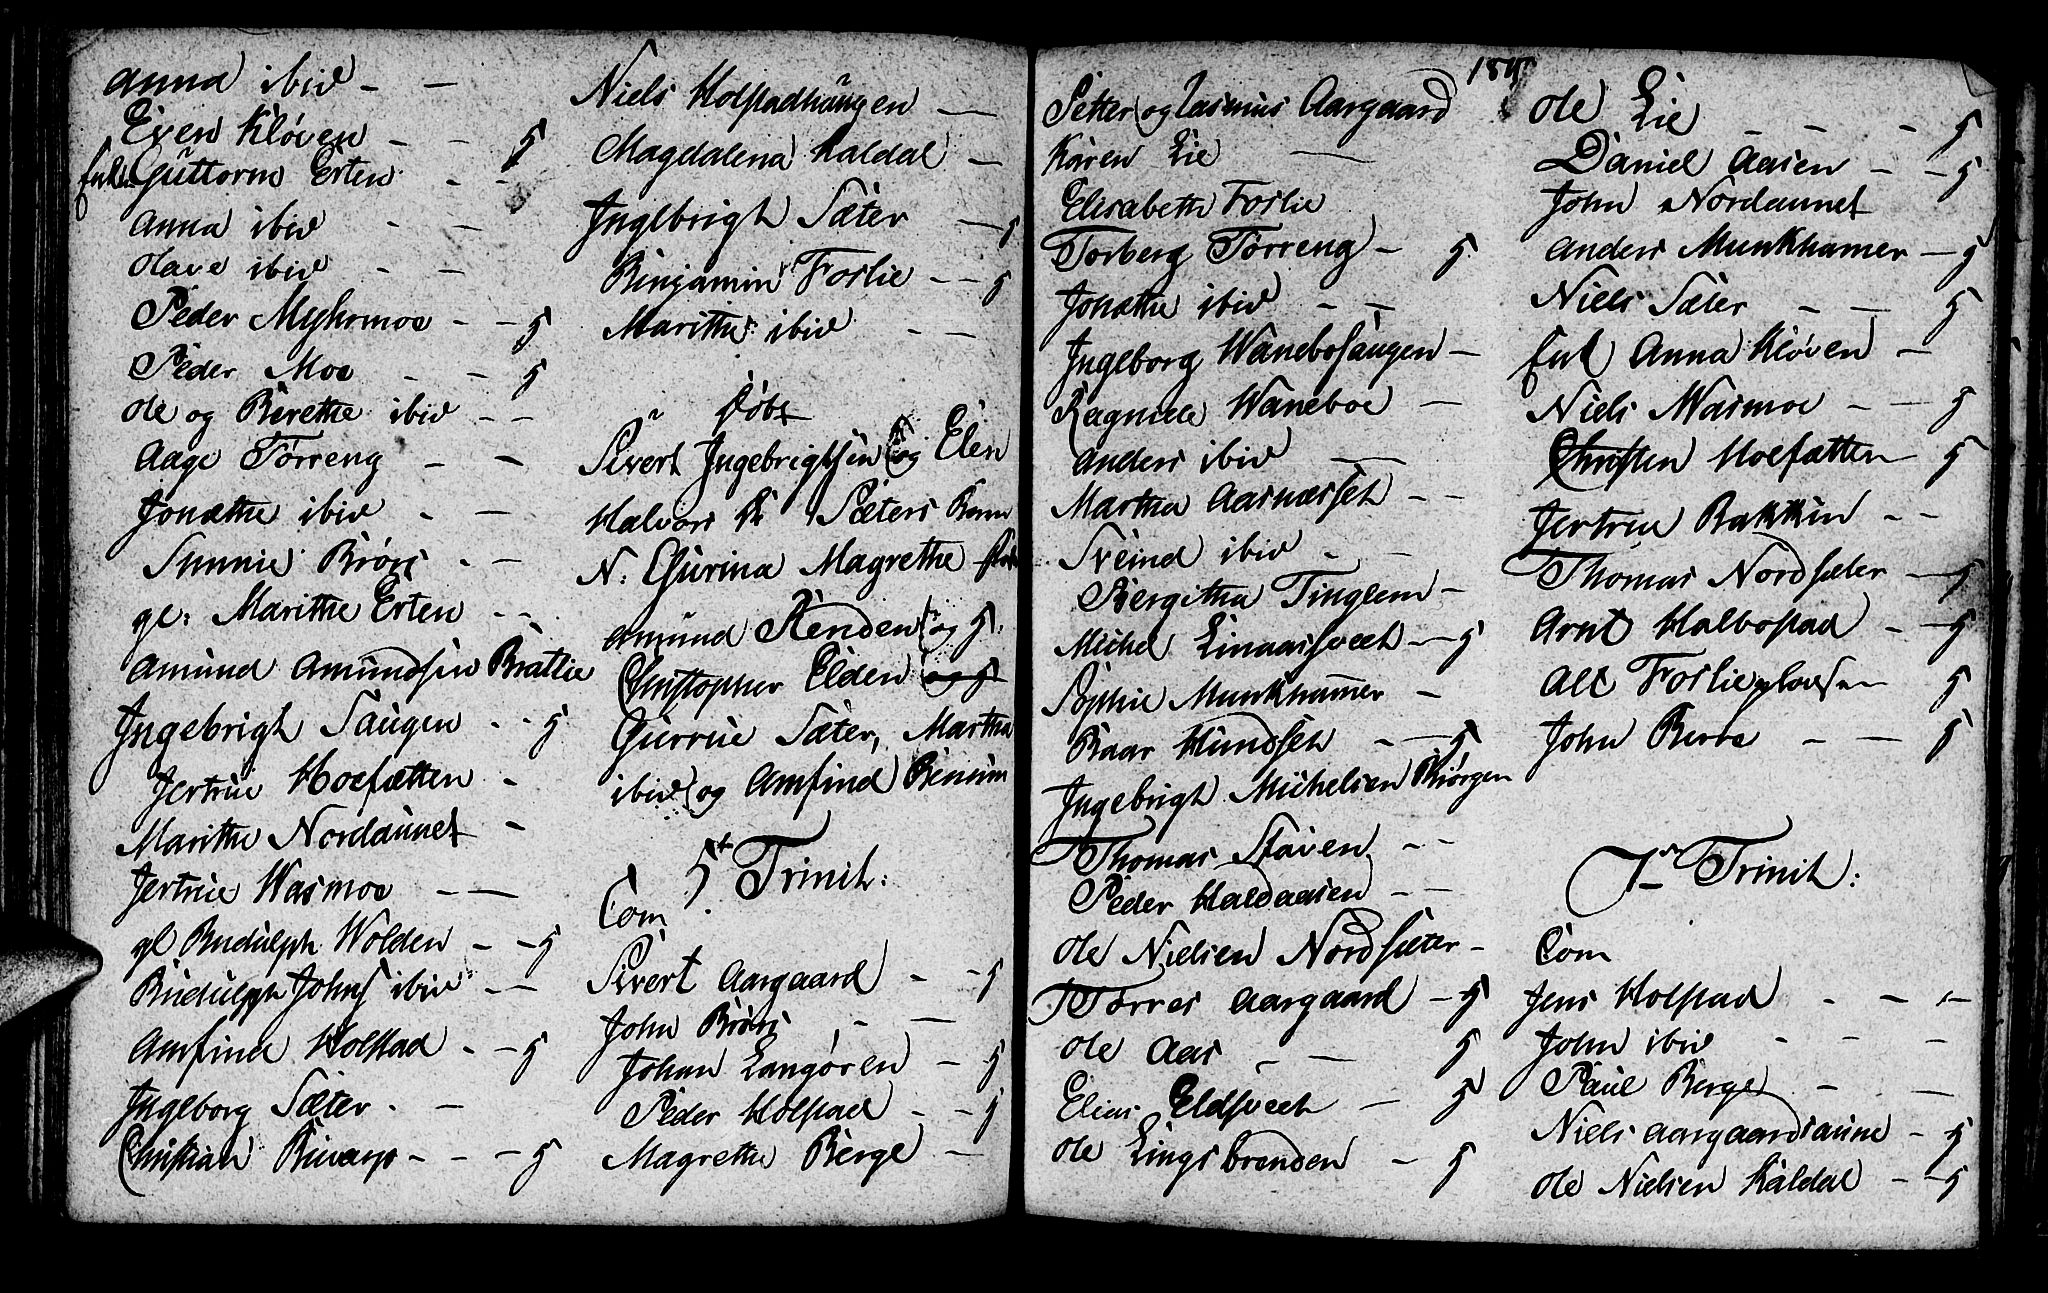 Anna ibid - -
Even Kløven - - 5
Enk. Guttorm Erten - -
Anna ibid - -
Olave ibid - -
Peder Myhrmoe - - 5
Peder Moe - - 5
Ole og Berethe ibid - -
Aage Torreng - -
Jonethe ibid - -
Sunnie Brørs - -
gl: Marithe Erten - -
Amund Amundsen Brattlie
Ingebrigh Saugen - - 5
Jertrue Hoefætten -
Marithe Nordaunet -
Jertrue Wasmoe - -
gl Rudulph Wolden - - 5
Rudulph Johns ibid - -
Amfind Holstad - - 5
Ingeborg Sæter - -
Christian - - - 5
Niels Holstadhaugen -
Magdalena Kaldal -
Ingebrigh Sæter - 5
Binjamin Forlie - - 5
Marithe ibid - -
Døbt
Sivert Ingebrigtsen og Elen
Halvors Sæters Barn
N: Gurina Magrethe
Amund Renden og 5
Christopher Elden og 5
Gurrue Sæter, Martha
ibid og Amfind
5t Trinit:
Com
Sivert Aargaard - - 5
John Brørs - -
Johan Langøren - 5
Peder Holstad - - 5
Magrethe Berge -
185
Petter og Rasmus Aargaard
Karen Lie -
Elisabeth Forlie
Torberg Torreng - 5
Jonethe ibid - -
Ingeborg Wanebosaugen -
Ragnele Waneboe -
Anders ibid -
Martha Aasnæsset - -
Sveind ibid - -
Bergitha Tinglem -
Michel Linaasveet - 5
Sophie Munkhamer -
Baar Hundset - - 5
Ingebrigh Michelsen Biørgen
Thomas Støven - -
Peder Haldaasen - -
Ole Nielsen Nordsæter -
Torres Aargaard - 5
Ole Aas - - 5
Elias Eldsveet - 5
Ole Lingsbrenden - 5
Ole Lie - - - 5
Daniel Aasen - - 5
John Nordaunet
Anders Munkhamer - 5
Niels Sæter - - 5
Enk Anna Kløven -
Niels Wasmoe - - 5
Christen Hoefætten - 5
Jertrue Bakken - -
Thomas Nordsæter - 5
Arnt Halbostad - - 5
Ole Forlie 5
John Berre - - 5
7de Trinit:
Com
Jens Holstad - - -
John ibid - - -
Paul Berge - -
Niels Aargaardsaune - 5
Ole Nielsen Kaldal - - 5